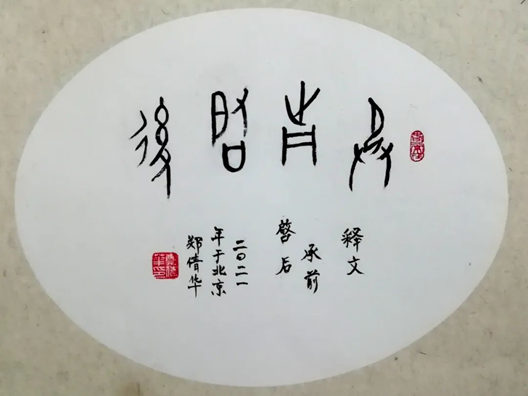 承前启後
释文
承前
啓后
二〇二一
年于北京
郑倩华